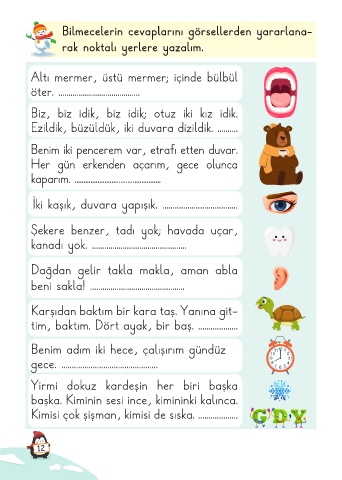 Bilmecelerin cevaplarını görsellerden yararlana-
rak noktalı yerlere yazalım.
Altı mermer, üstü mermer; içinde bülbül
öter. ....................................
Biz, biz idik, biz idik; otuz iki kız idik.
Ezildik, büzüldük, iki duvara dizildik. ..........
Benim iki pencerem var, etrafı etten duvar.
Her gün erkenden açarım, gece olunca
kaparım. ......................................
İki kaşık, duvara yapışık. .................................
Şekere benzer, tadı yok; havada uçar,
kanadı yok. ..........................................
Dağdan gelir takla makla, aman abla
beni sakla! ..........................................
Karşıdan baktım bir kara taş. Yanına git-
tim, baktım. Dört ayak, bir baş. ..................
Benim adım iki hece, çalışırım gündüz
gece. ...........................................
Yirmi dokuz kardeşin her biri başka
başka. Kiminin sesi ince, kimininki kalınca.
Kimisi çok şişman, kimisi de sıska. ..................
G D Y
12